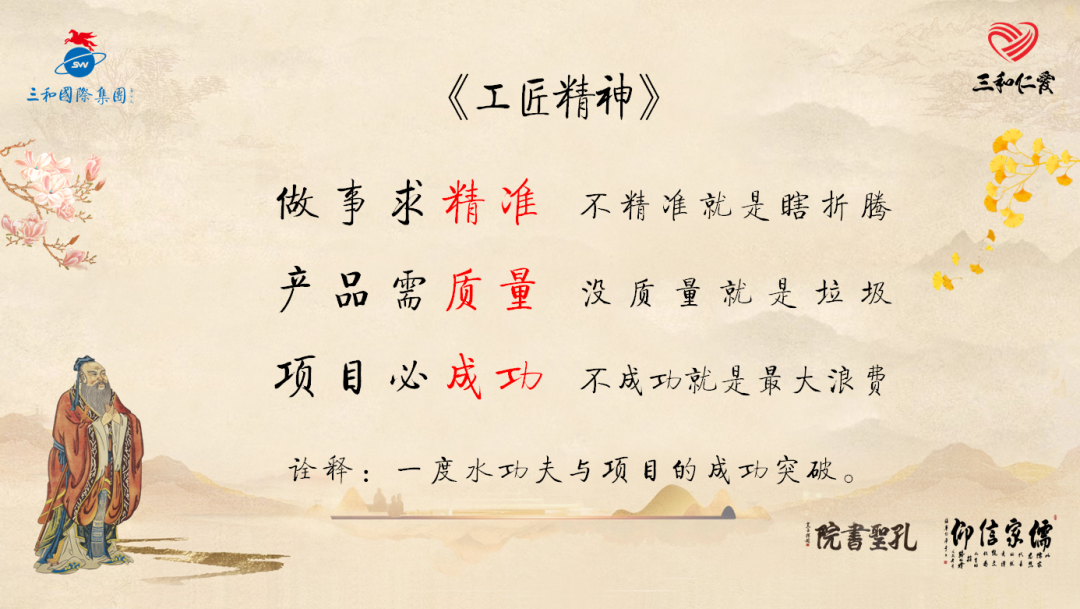 三和國際集團
三和仁爱
《工匠精神》
做事求精准 不精准就是瞎折腾
产品需质量 没质量就是垃圾
项目必成功 不成功就是最大浪费
诠释：一度水功夫与项目的成功突破。
院書聖孔
仰信家儒